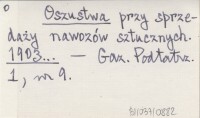 o
Oszustwa przy sprze-
daży nawozów sztucznych.
1903... — Gaz. Podtatrz.
1, nr 9.